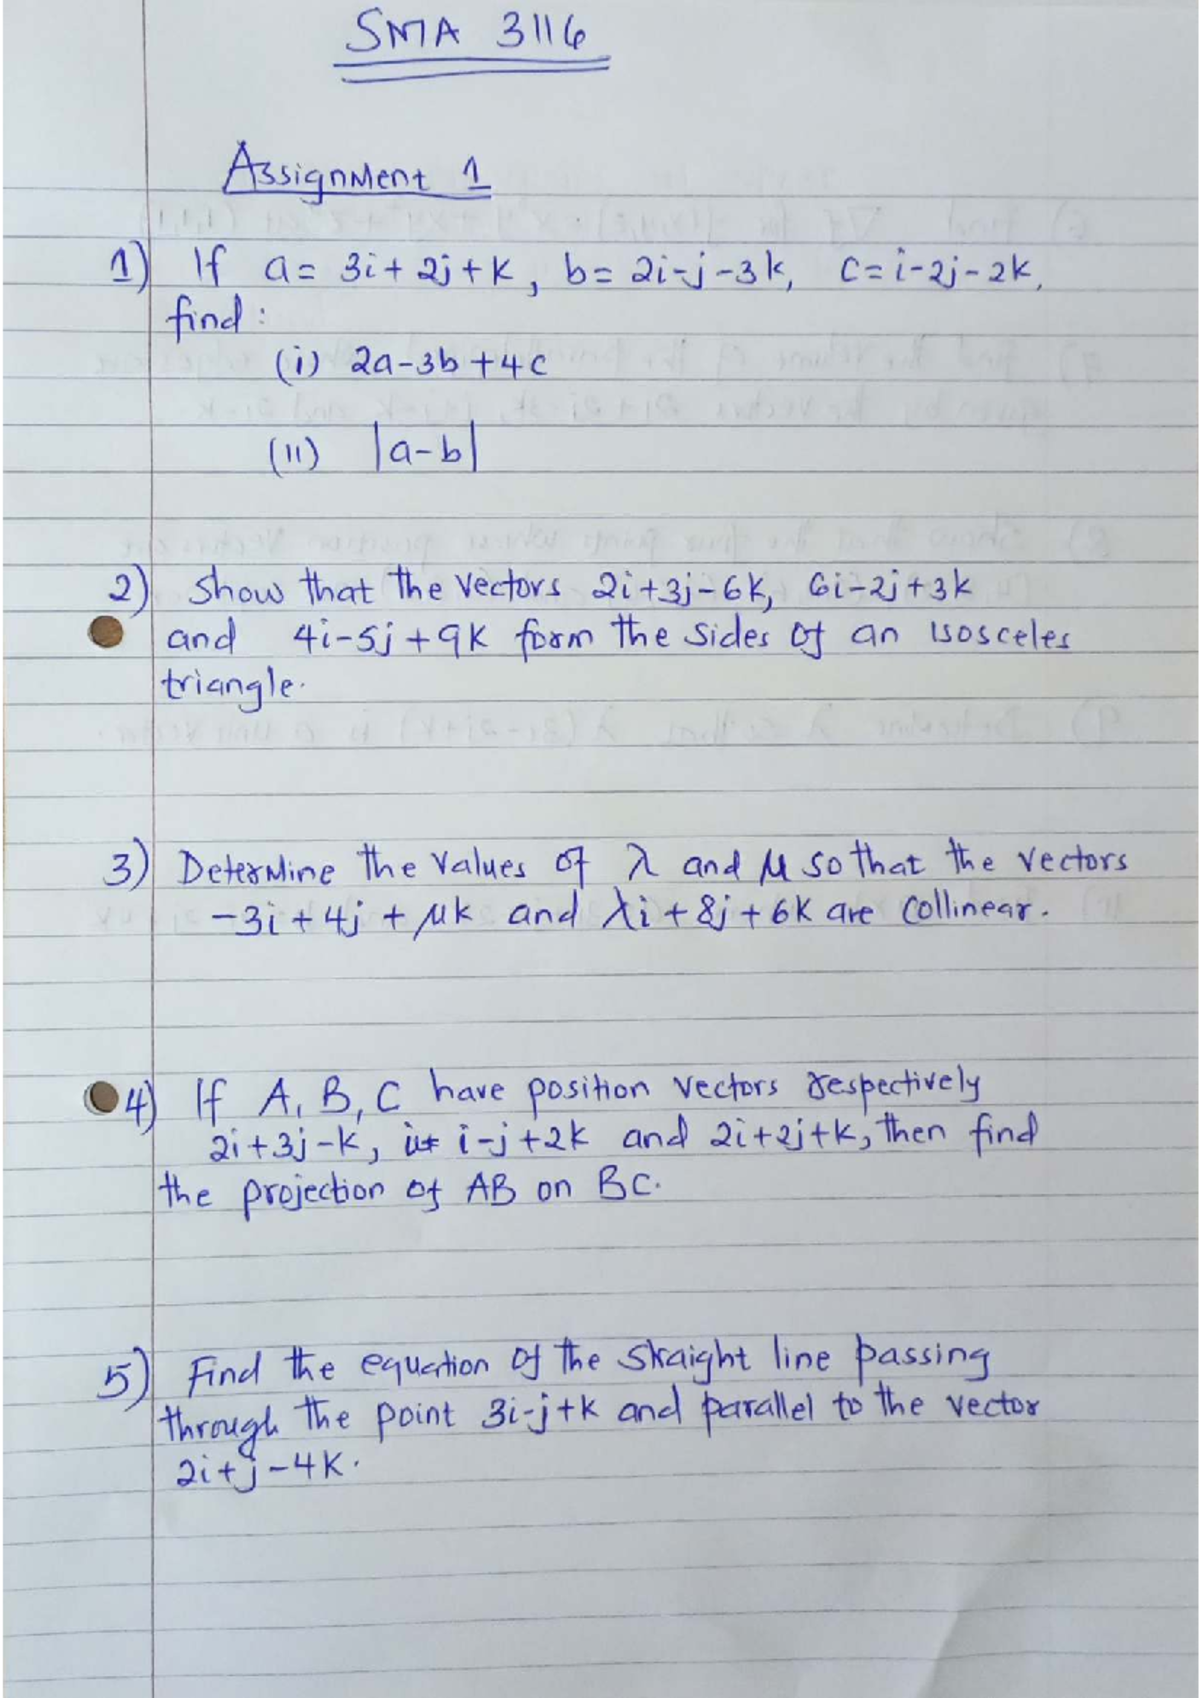 SMA 3116
Assignment 1
1) If a = 3i + 2j + k, b = 2i-j-3k, c = i-2j-2k,
find:
(i) 2a-3b+4c
(ii) |a-b|
2) Show that the vectors 2i+3j-6k, 6i-2j+3k
and 4i-5j+9k form the sides of an isosceles
triangle.
3) Determine the values of λ and μ so that the vectors
-3i + 4j + μk and λi + 8j + 6k are collinear.
4) If A, B, C have position vectors respectively
2i+3j-k, i-j+2k and 2i+2j+k, then find
the projection of AB on BC.
5) Find the equation of the straight line passing
through the point 3i-j+k and parallel to the vector
2i+j-4k.